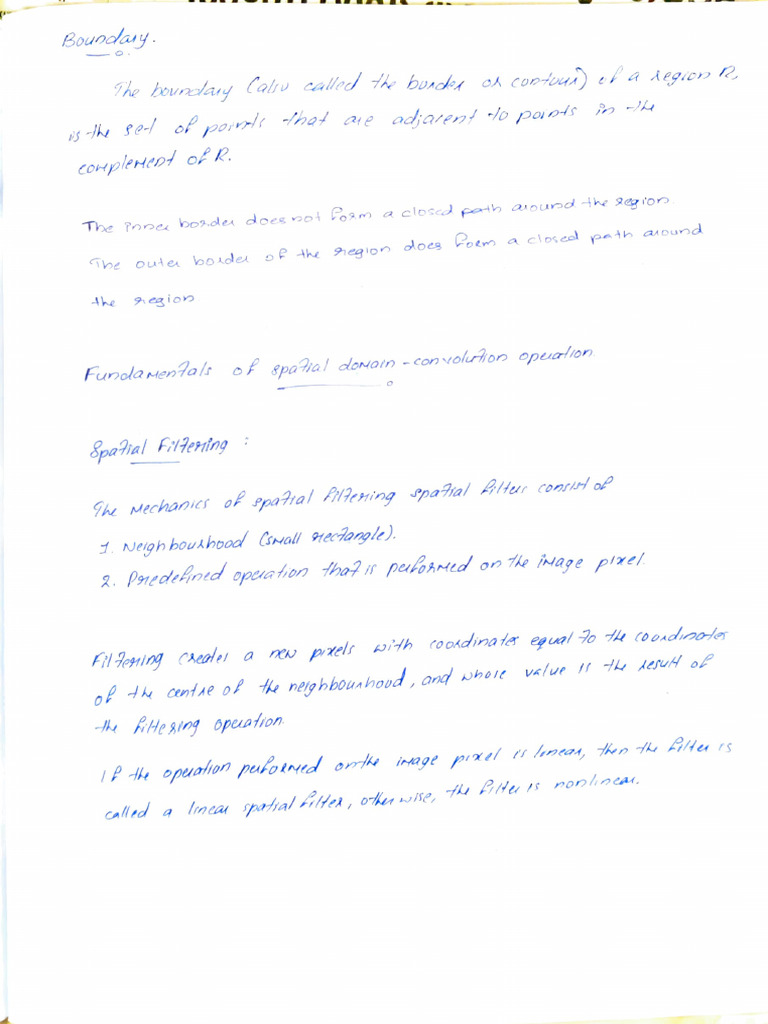 Boundary.
The boundary (also called the border or contour) of a region R,
is the set of points that are adjacent to points in the
complement of R.
The inner border does not form a closed path around the region.
The outer border of the region does form a closed path around
the region
Fundamentals of spatial domain - convolution operation.
Spatial Filtering :
The Mechanics of spatial filtering spatial filters consist of
1. Neighbourhood (small rectangle).
2. Predefined operation that is performed on the image pixel.
Filtering creates a new pixels with coordinates equal to the coordinates
of the centre of the neighbourhood, and whose value is the result of
the filtering operation.
If the operation performed on the image pixel is linear, then the filter is
called a linear spatial filter, otherwise, the filter is nonlinear.